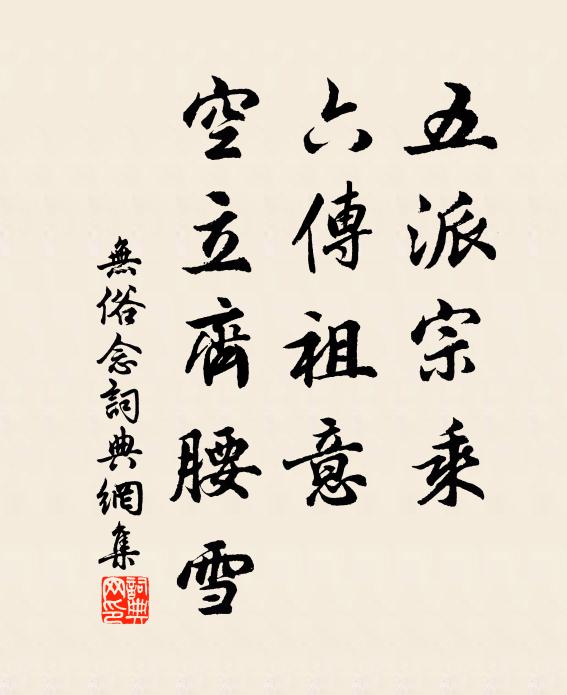 五派宗乘
六傳祖意
空立齊腰雪
無俗念詞典網集
詞典網印